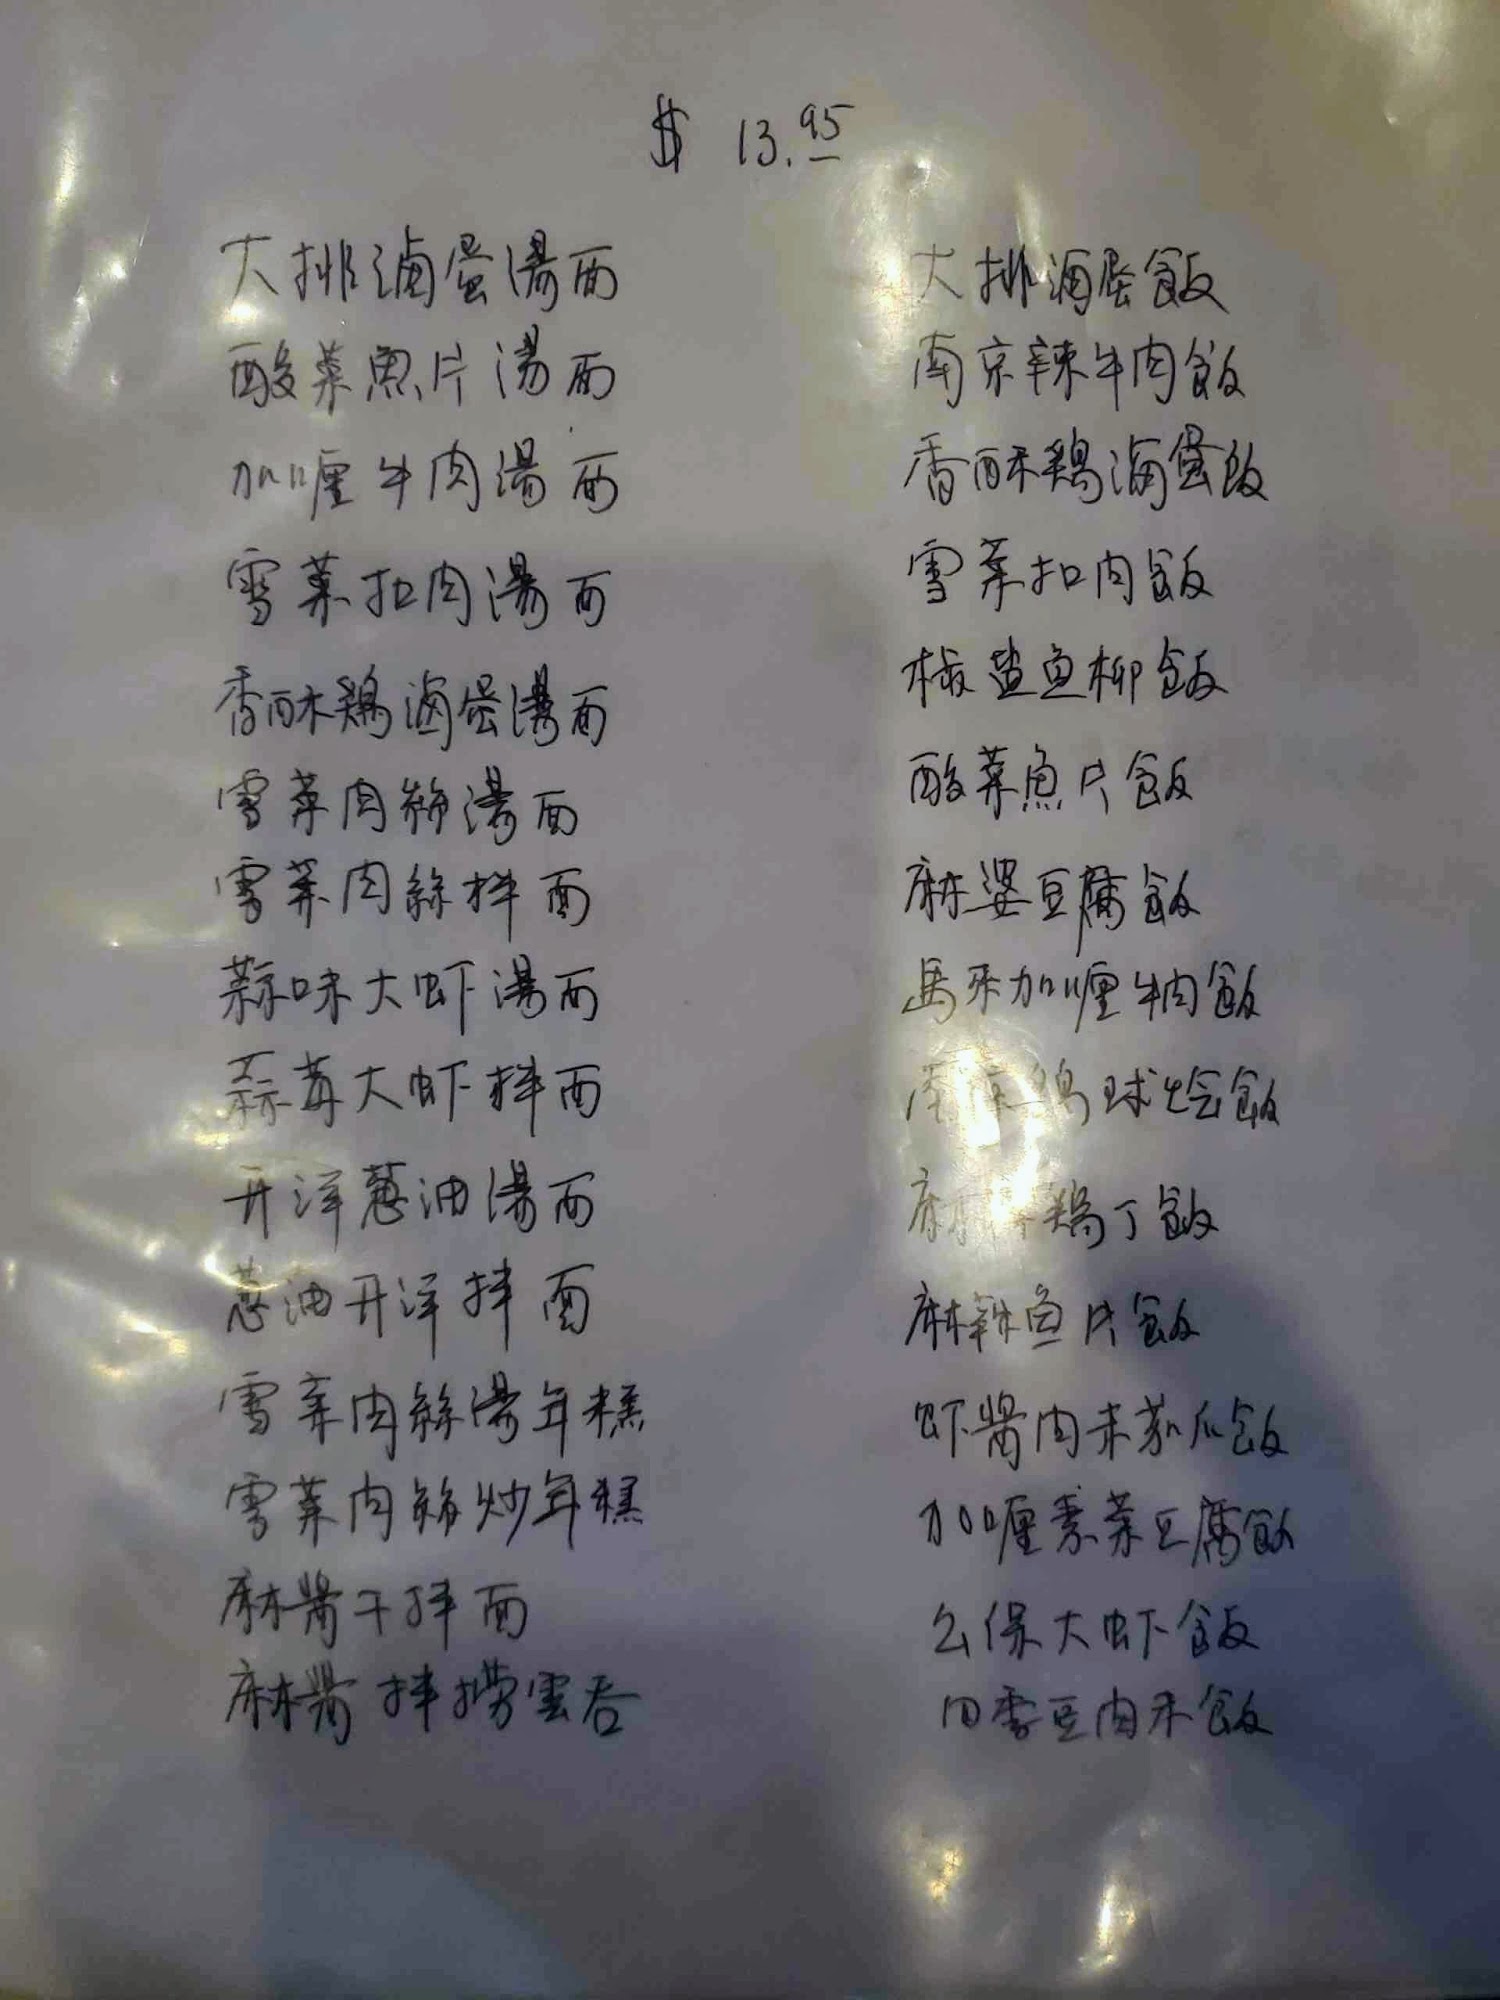 $ 13.95
大排滷蛋湯面
酸菜魚片湯面
加喱牛肉湯面
雪菜扣肉湯面
香酥鷄滷蛋湯面
雪菜肉絲湯面
雪菜肉絲拌面
蒜味大虾湯面
蒜蓉大虾拌面
开洋蔥油湯面
蔥油开洋拌面
雪菜肉絲湯年糕
雪菜肉絲炒年糕
麻醬干拌面
麻醬拌撈雲吞
大排滷蛋飯
南京辣牛肉飯
香酥鷄滷蛋飯
雪菜扣肉飯
椒盐魚柳飯
酸菜魚片飯
麻婆豆腐飯
馬來加喱牛肉飯
鷄球烩飯
麻辣鷄丁飯
麻辣魚片飯
虾醬肉末茄瓜飯
加喱素菜豆腐飯
公保大虾飯
四季豆肉末飯